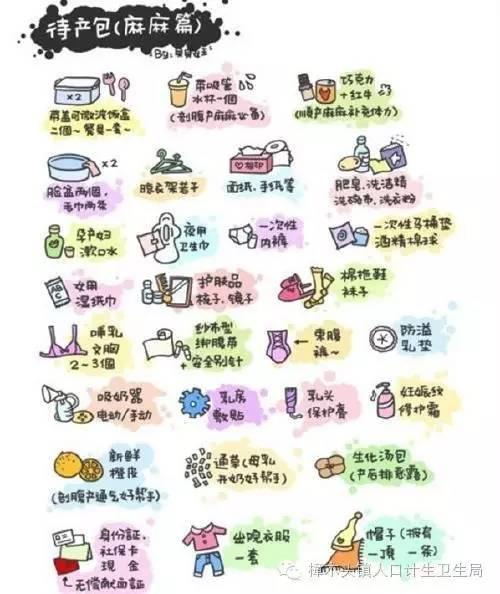 待产包(麻麻篇)
×2
带盖可微波饭盒
二個~餐具一套~
带吸管
水杯一個
(剖腹产麻麻必备)
巧克力
+红牛
(顺产麻麻补充体力)
×2
脸盆两個,
毛巾两条
晾衣架若干
面纸,手纸等
肥皂,洗洁精
洗碗布,洗衣粉
孕产妇
漱口水
夜用
卫生巾
一次性
内裤
一次性马桶垫
酒精棉球
女用
湿纸巾
护肤品
梳子,镜子
棉拖鞋
袜子
哺乳
文胸
2~3個
纱布型
绑腹带
+安全别针
束腹
裤~
防溢
乳垫
吸奶器
电动/手动
乳房
敷贴
乳头
保护膏
妊娠纹
修护霜
新鲜
橙皮
(剖腹产通气好帮手)
通草(母乳
开奶好帮手)
生化汤包
(产后排恶露)
身份証,
社保卡
现金
无偿献血証
出院衣服
一套
帽子(披肩
一顶 一条)
樟木头镇人口计生卫生局